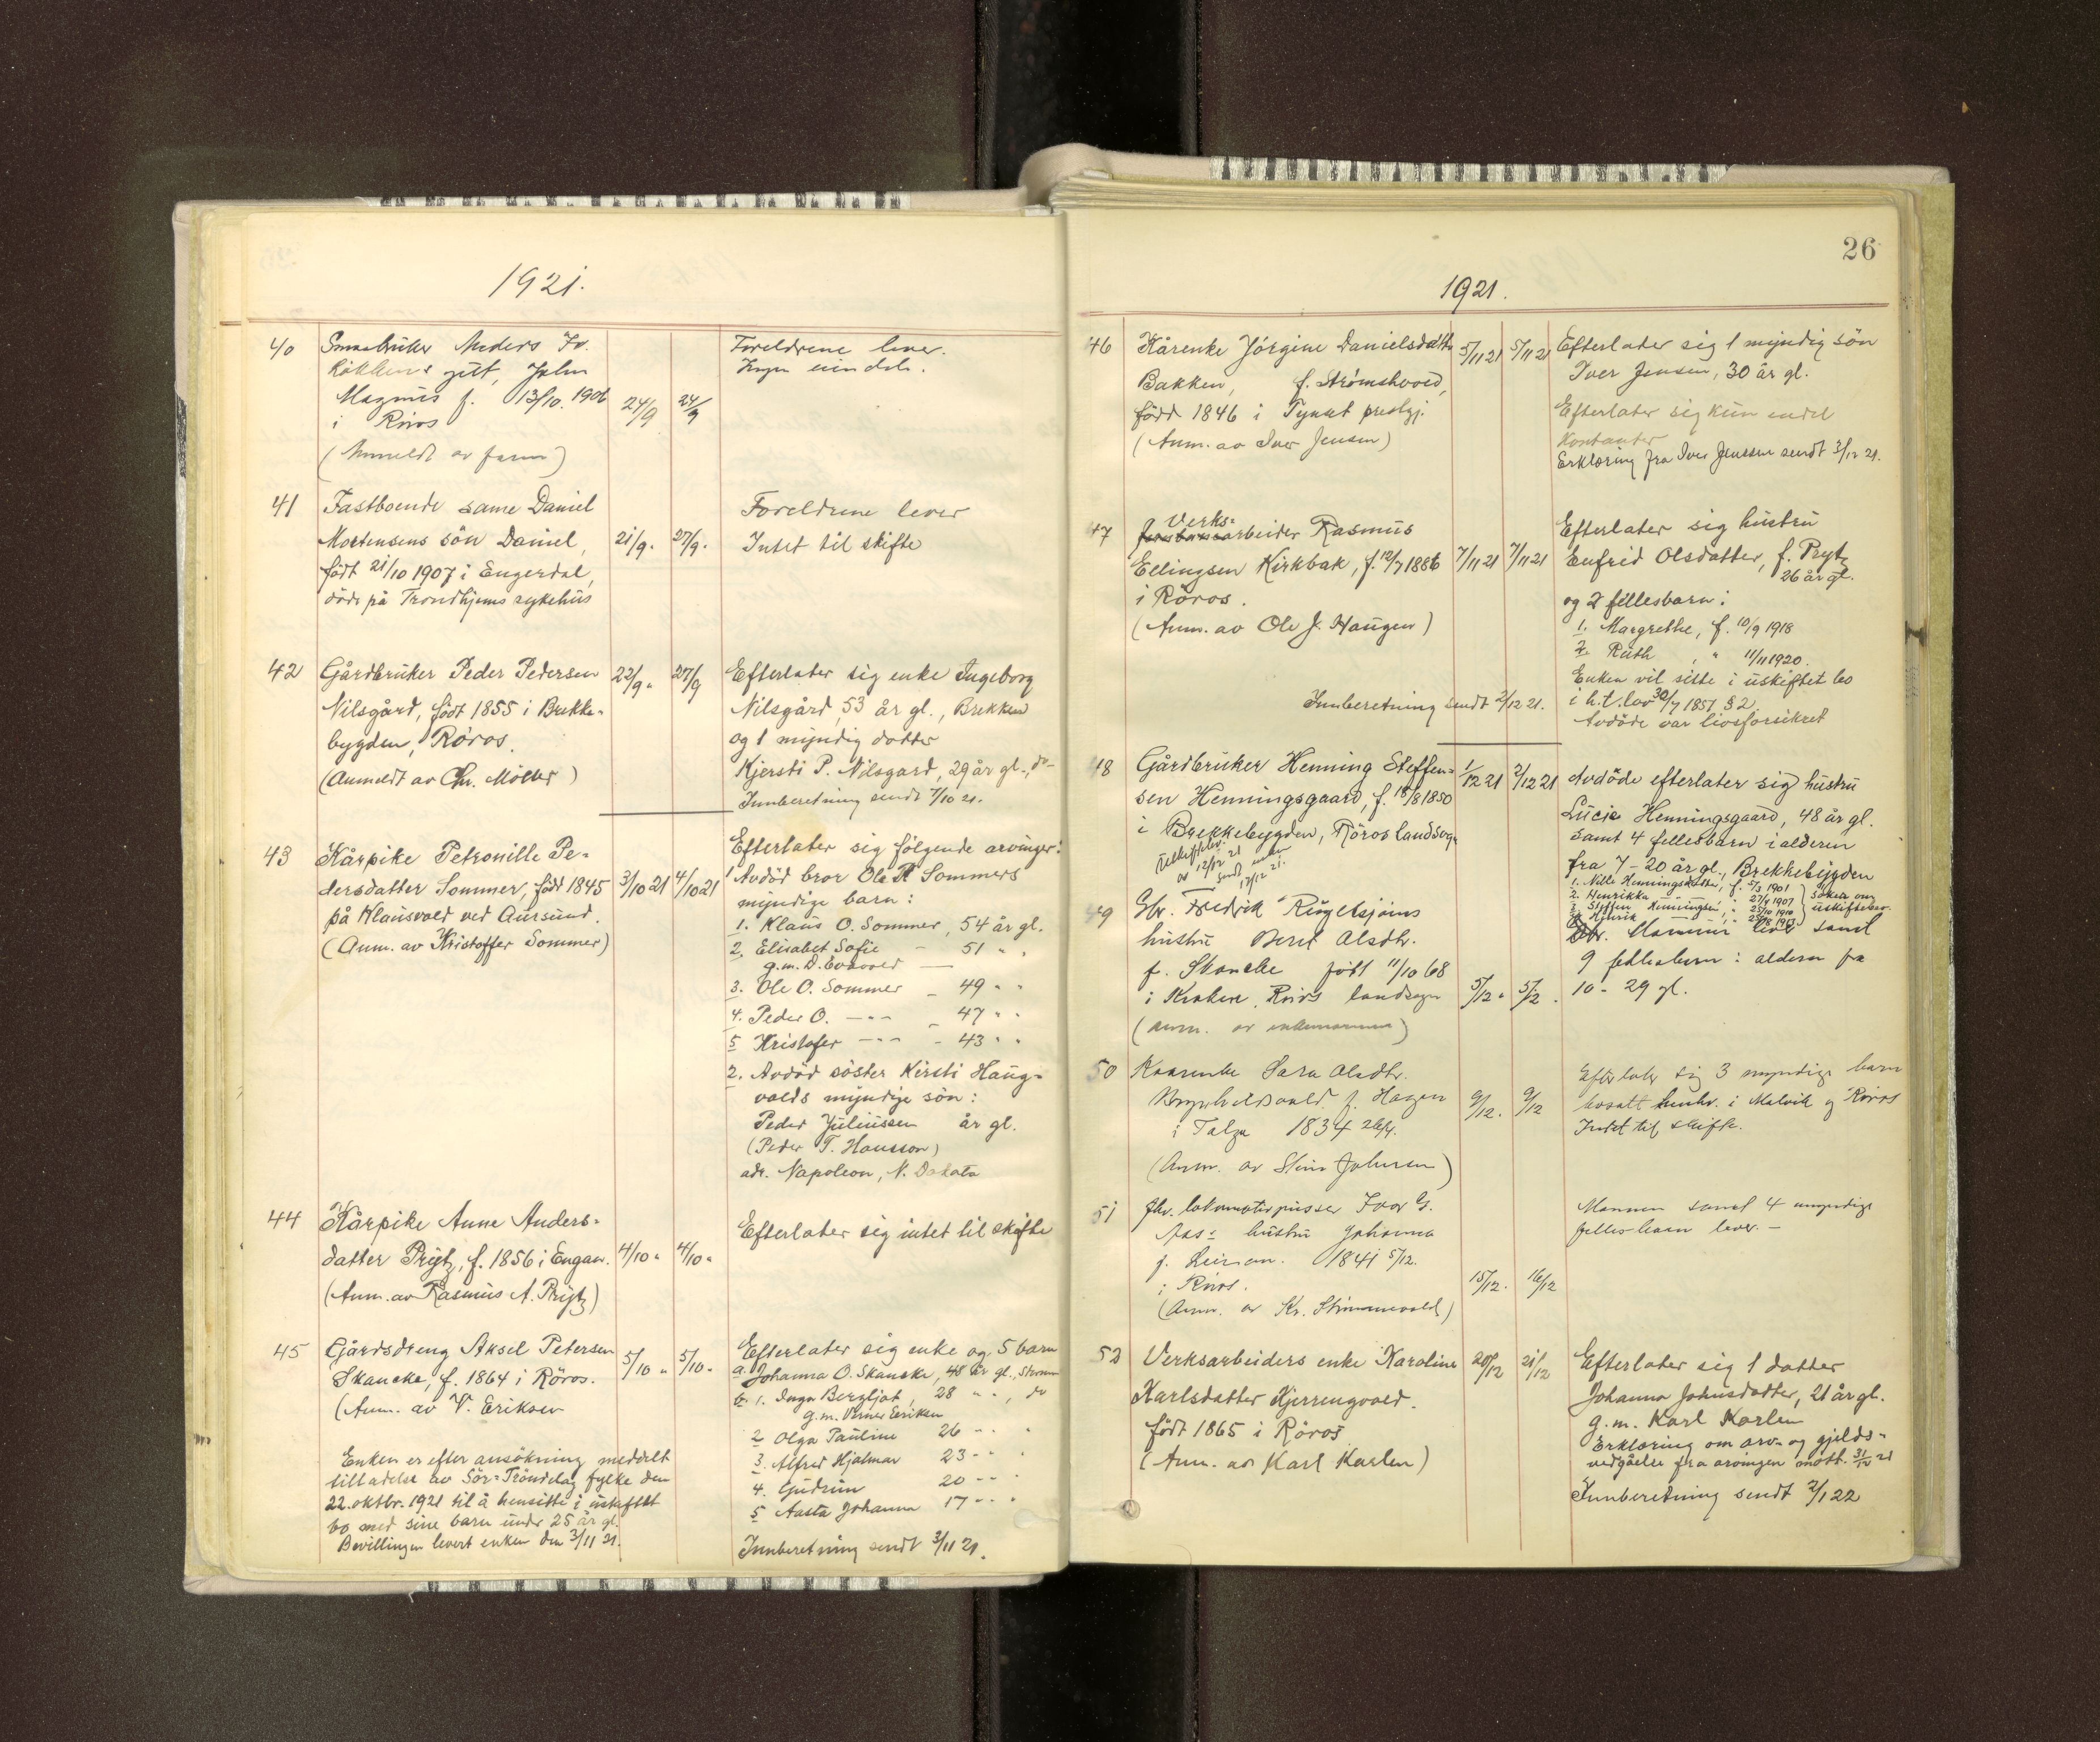 1921.
40 Smaabruker Anders Iv.
gut, John
Magnus f. 13/10. 1906 24/9 24/9
i Röros
(Anmeldt av faren)
Foreldrene lever.
Ingen eiendele.
41 Fastboende same Daniel
Mortensens sön Daniel, 21/9. 27/9.
født 21/10 1907 i Engerdal,
döde på Trondhjems sykehus
Foreldrene lever
Intet til skifte
42 Gårdbruker Peder Pedersen 22/9 " 27/9
Nilsgård, födt 1855 i Brekke-
bygden, Röros.
(Anmeldt av Chr. Möller)
Efterlater sig enke Ingeborg
Nilsgård, 53 år gl., Brekken
og 1 myndig datter
Kjersti P. Nilsgard, 29 år gl., do-
Innberetning sendt 7/10 21.
43 Kårpike Petronille Pe-
dersdatter Sommer, född 1845 3/10 21 4/10 21
på Klausvold ved Aursund.
(Anm. av Kristoffer Sommer)
Efterlater sig følgende arvinger:
1 Avdöd bror Ole P. Sommers
myndige barn:
1. Klaus O. Sommer, 54 år gl.
2. Elisabet Sofie - 51 " "
g.m. D. Evavold
3. Ole O. Sommer - 49 " "
4. Peder O. -"- - 47 " "
5 Kristofer -"- - 43 " "
2. Avdöd söster Kirsti Haug-
volds myndige sön:
Peder Juliussen år gl.
(Peder T. Hansson)
adr. Napoleon, N. Dakota
44 Kårpike Anne Anders-
datter Prytz, f. 1856 i Engan. 4/10 " 4/10 "
(Anm. av Rasmus A. Prytz)
Efterlater sig intet til skifte
45 Gårdsdreng Aksel Petersen
Skancke, f. 1864 i Röros. 5/10 " 5/10 "
(Anm. av V. Eriksen
Enken er efter ansökning meddelt
tilladelse av Sör-Tröndelag fylke den
22. oktbr. 1921 til å hensitte i uskiftet
bo med sine barn under 25 år gl.
Bevillingen levert enken den 3/11 21.
Efterlater sig enke og 5 barn
a. Johanna O. Skancke, 48 år gl.,
b. 1. Inga Bergljot, 28 " ", do
g.m. Verner Eriksen
2 Olga Pauline 26 " "
3. Alfred Hjalmar 23 " "
4. Gudrun 20 " "
5 Aasta Johanna 17 " "
Innberetning sendt 3/11 21.
26
1921.
46 Kårenke Jörgine Danielsdatter 5/11 21 5/11 21
Bakken, f. Strømshoved,
född 1846 i Tynset prestgj.
(Anm. av Iver Jensen)
Efterlater sig 1 myndig sön
Iver Jensen, 30 år gl.
Efterlater sig kun endel
kontanter
Erklæring fra Iver Jenssen sendt 3/12 21.
47 Verks-
arbeider Rasmus
Ellingsen Kirkbak, f. 12/7 1886 7/11 21 7/11 21
i Röros.
(Anm. av Ole J. Haugen)
Innberetning sendt 2/12 21.
Efterlater sig hustru
Enfrid Olsdatter, f. Prytz
26 år gl.
og 2 fellesbarn:
1. Margrethe, f. 10/9 1918
2. Ruth, " 11/11 1920.
Enken vil sitte i uskiftet bo
i h. t. lov 30/7 1851 § 2.
Avdöde var livsforsikret
48 Gårdbruker Henning Steffen- 1/12 21 2/12 21
sen Henningsgaard, f. 18/8 1850
i Brekkebygden, Röros landsogn
av 12/12 21
sendt enken
12/12 21.
Avdöde efterlater sig hustru
Lucie Henningsgaard, 48 år gl.
samt 4 fellesbarn i alderen
fra 7 - 20 år gl., Brekkebygden
1. Nille Henningsdatter, f. 5/3 1901
2. Henrikka -"- 27/4 1907
3. Steffen Henningsen, " 25/10 1910
4. Henrik -"- 1913
söker om
uskiftebev.
49 Gbr. Fredrik Rugelsjöens
hustru Beret Olsdtr.
f. Skancke født 11/10 68
i Kroken, Röros landsogn 5/12 " 5/12.
(Anm. av enkemannen)
Mannen lever samt
9 fellesbarn i alderen fra
10 - 29 gl.
50 Kaarenke Sara Olsdtr.
f. Hagen 9/12. 9/12
i Tolga 1834
(Anm. av Johnsen)
Efterlater sig 3 myndige barn
bosatt henhv. i Malvik og Röros
Intet til skifte.
51 fhv. lokomotivpusser Ivar G.
Aas: hustru Johanna
f. 1841 5/12.
i Röros. 15/12. 16/12
(Anm. av Kr. )
Mannen samt 4 myndige
felles barn lever. -
52 Verksarbeiders enke Karoline 20/12 21/12
Karlsdatter Kjerrengvold.
født 1865 i Röros
(Anm. av Karl Karlen)
Efterlater sig 1 datter
Johanna Johnsdatter, 21 år gl.
g.m. Karl Karlen
Erklæring om arv- og gjelds-
vedgåelse fra arvingen mott. 31/12 21
Innberetning sendt 2/1 22